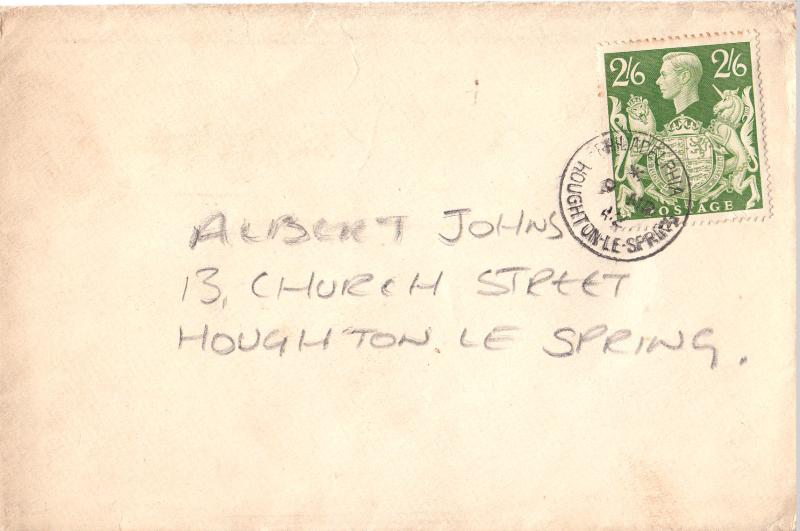 2/6 2/6
POSTAGE
PHILADELPHIA
HOUGHTON-LE-SPRING
ALBERT JOHNS
13, CHURCH STREET
HOUGHTON LE SPRING.